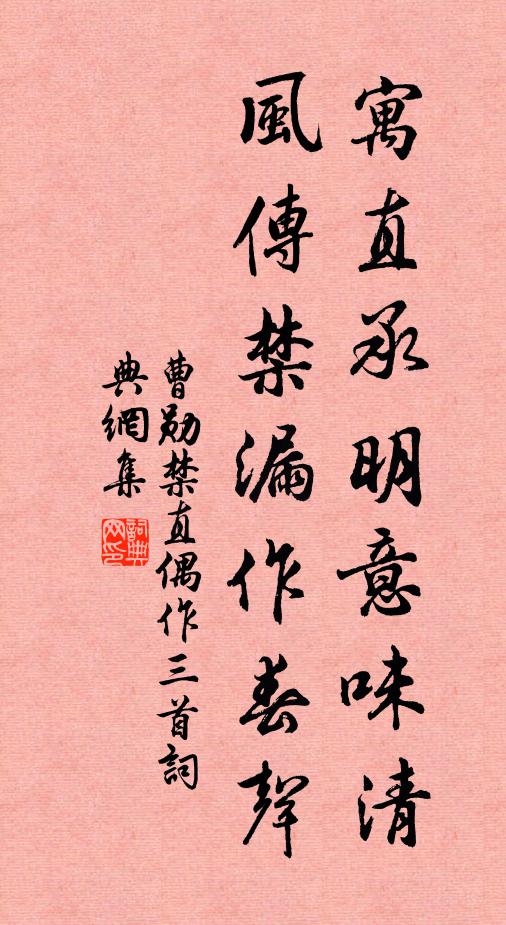 寓直承明意味清
風傳禁漏作春聲
曹勛禁直偶作三首詞
典網集
詞典網印